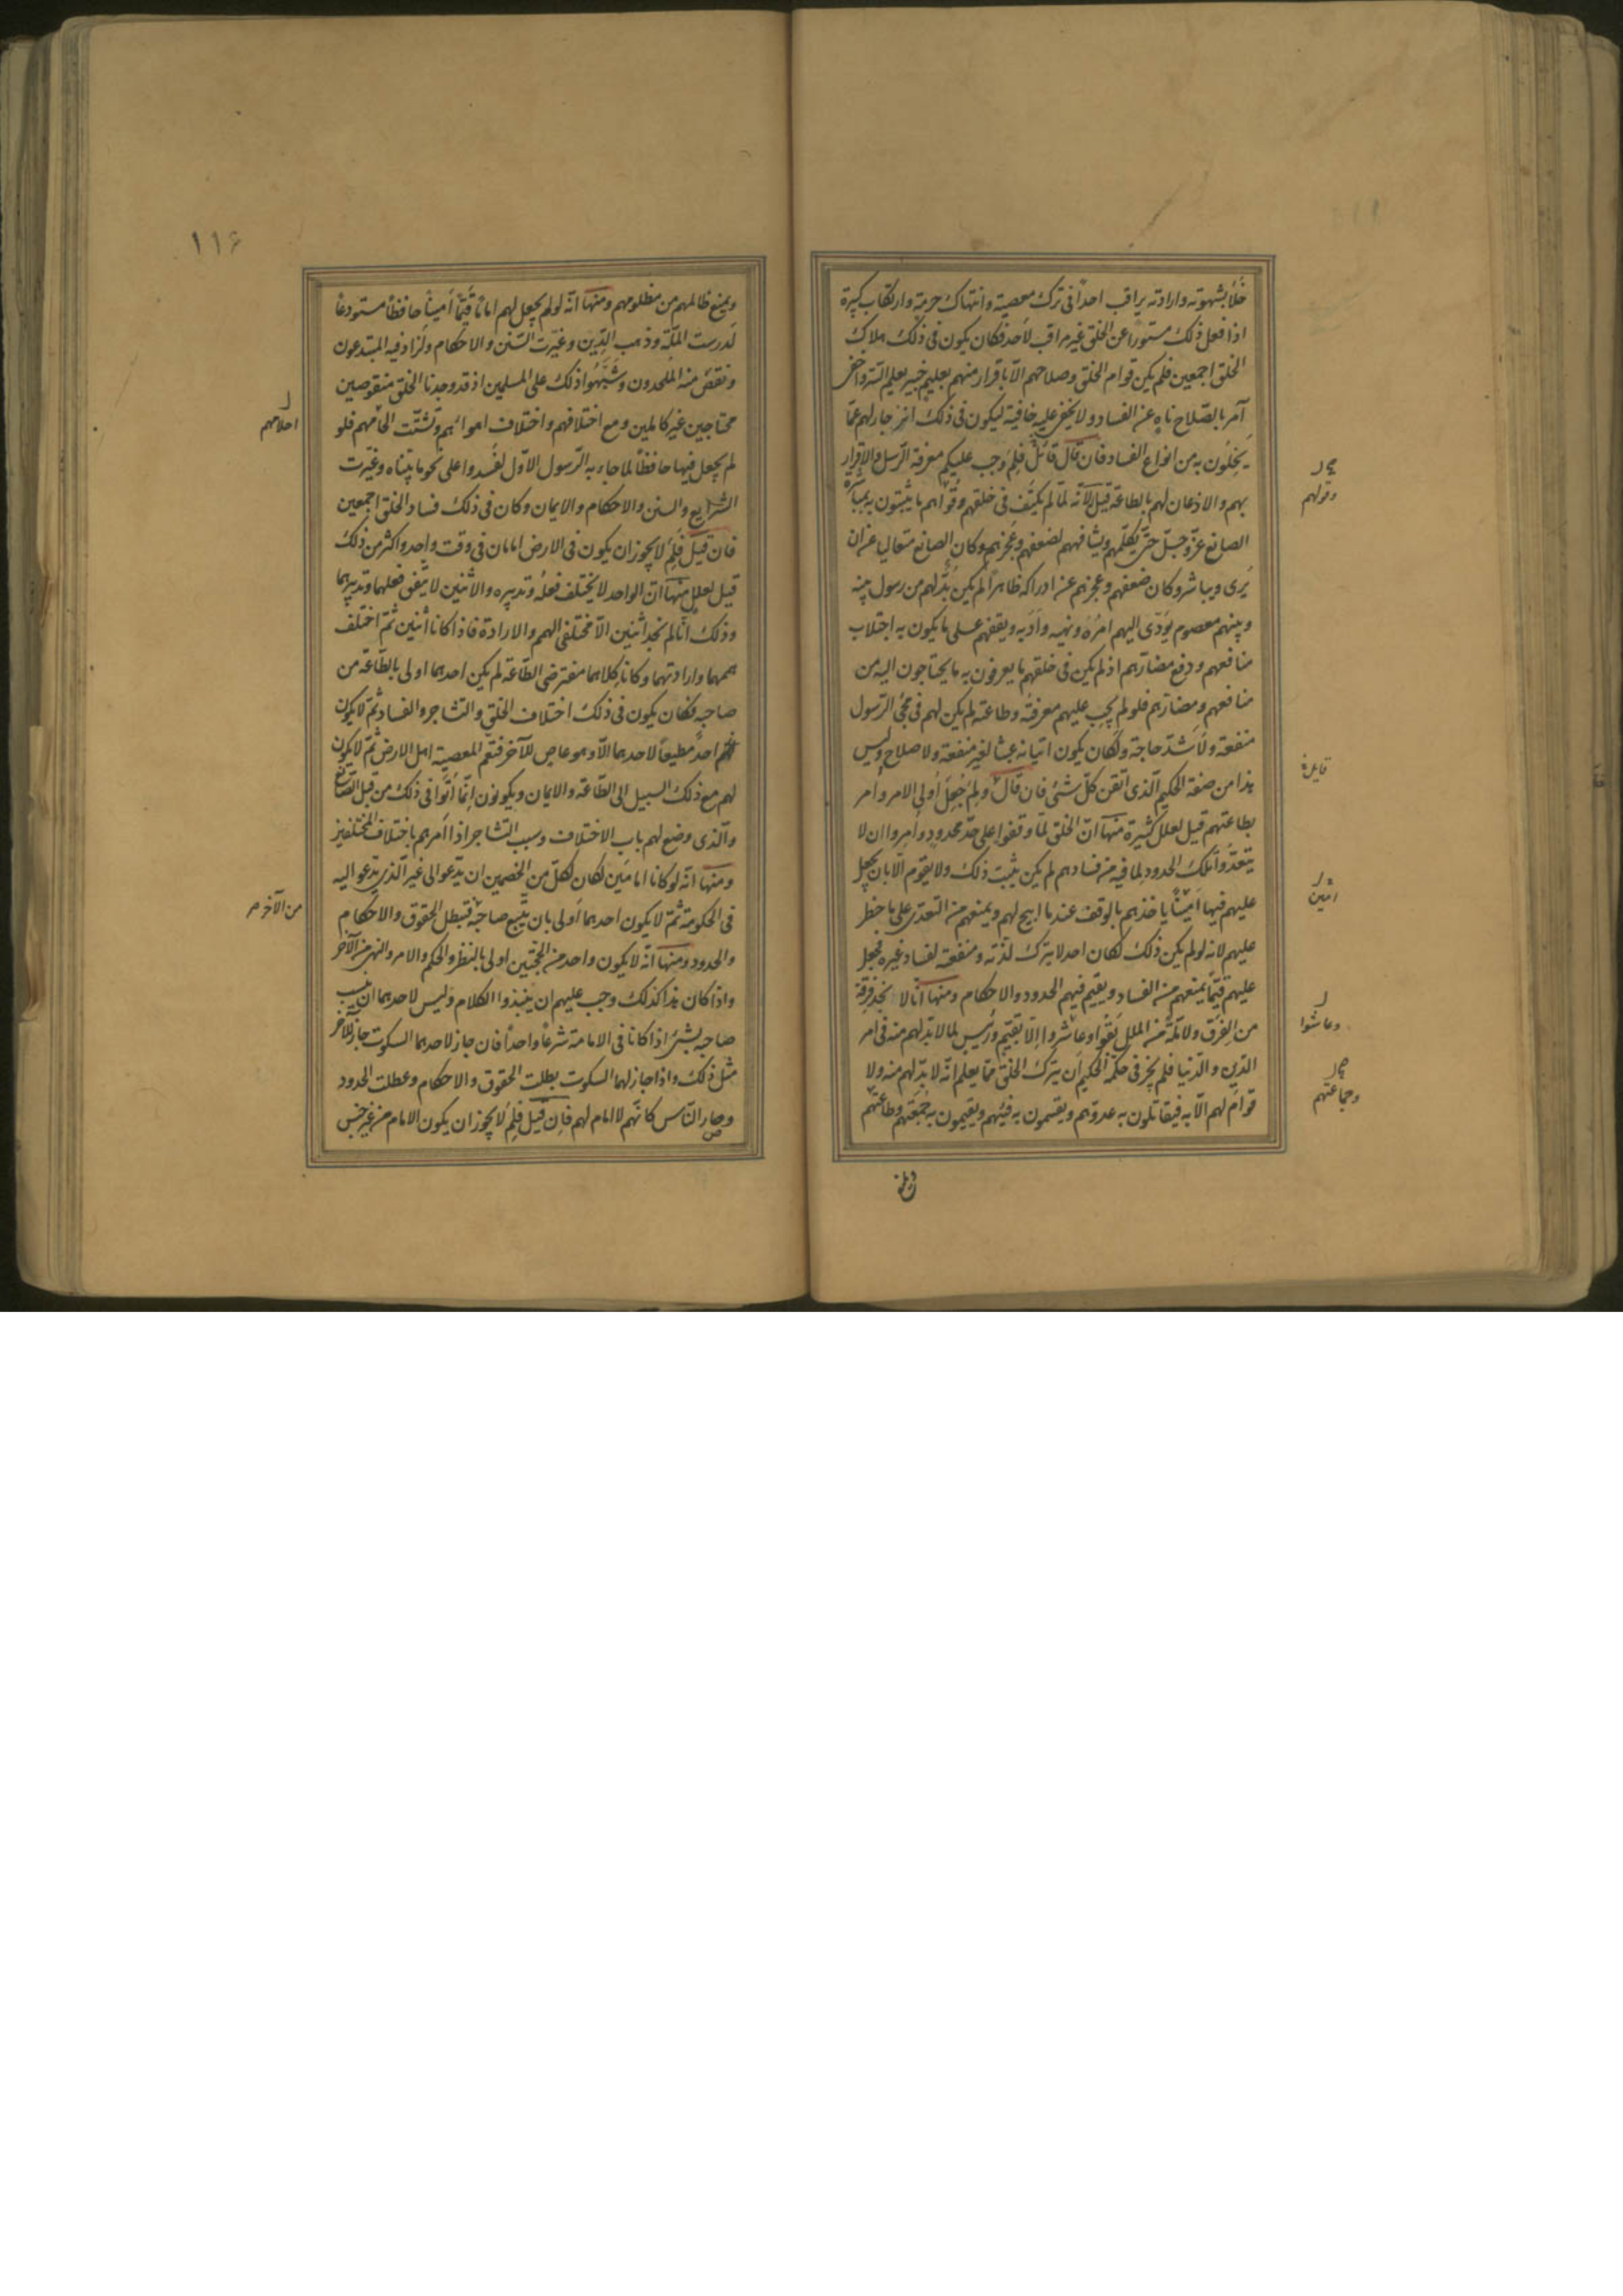 خلا بشهوته وارادته يراقب احداً فى ترك معصية وانتهاك حرمة وارتكاب كبيرة
اذا فعل ذلك مستوراً عن الخلق غير مراقب لاحد فكان يكون فى ذلك هلاك
الخلق اجمعين فلم يكن قوام الخلق وصلاحهم الّا باقرار منهم بعليم خبير يعلم السّر واخفى
آمر بالصّلاح ناهٍ عن الفساد ولا يخفى عليه خافية ليكون فى ذلك انزجار لهم عمّا
يخلون به من انواع الفساد فان قال قائل فلم وجب عليكم معرفة الرّسل والاقرار
بهم والاذعان لهم بالطاعة قيل لانّه لمّا لم يكتف فى خلقهم وقواهم ما يثبتون به لمباشرة
الصانع عزّ وجلّ حتى يكلّمهم ويشافههم لضعفهم وعجزهم وكان الصانع متعاليا عن ان
يُرى ويباشر وكان ضعفهم وعجزهم عن ادراكه ظاهراً لم يكن بدّ لهم من رسول بينه
وبينهم معصوم يؤدّى اليهم امره ونهيه وادبه ويقفهم على ما يكون به اجتلاب
منافعهم ودفع مضارّهم اذ لم يكن فى خلقهم ما يعرفون به ما يحتاجون اليه من
منافعهم ومضارّهم فلو لم يجب عليهم معرفته وطاعته لم يكن لهم فى مجئ الرّسول
منفعة ولا شدّ حاجة ولكان يكون اتيانه عبثا لغير منفعة ولا صلاح وليس
هذا من صفة الحكيم الّذى اتقن كلّ شئ فان قال ولم جُعل اُولى الامر وأمر
بطاعتهم قيل لعلل كثيرة منها انّ الخلق لمّا وقفوا على حدّ محدود وأمروا ان لا
يتعدّوا تلك الحدود لما فيه من فسادهم لم يكن يثبت ذلك ولا يقوم الّا بان يجعل
عليهم فيها اميناً ياخذهم بالوقف عند ما ابيح لهم ويمنعهم من التعدّى على ما حظر
عليهم لانه لو لم يكن ذلك لكان احد لا يترك لذّته ومنفعته لفساد غيره فجعل
عليهم قيّماً يمنعهم من الفساد ويقيم فيهم الحدود والاحكام ومنها انّا لا نجد فرقة
من الفرق ولا ملّة من الملل بقوا وعاشروا الّا بقيّم ورئيس لما لا بدّ لهم منه فى امر
الدّين والدّنيا فلم يجز فى حكمة الحكيم ان يترك الخلق ممّا يعلم انّه لا بدّ لهم منه ولا
قوام لهم الّا به فيقاتلون به عدوّهم ويقسمون به فيئهم ويقيمون به جمعتهم وطاعتهم
وقولهم
قايل
امين
وعاشوا
وجماعتهم
ويمنع
١١۶
ويمنع ظالمهم من مظلومهم ومنها انّه لو لم يجعل لهم اماماً قيّماً أميناً حافظاً مستودعاً
لدرست الملّة وذهب الدّين وغيّرت السّنن والاحكام ولزاد فيه المبتدعون
ونقص منه الملحدون وشبّهوا ذلك على المسلمين اذ قد وجدنا الخلق منقوصين
محتاجين غير كاملين ومع اختلافهم واختلاف اهوائهم وتشتّت انحائهم فلو
لم يجعل فيها حافظاً لما جاء به الرّسول الاوّل لفسدوا على نحو ما بيّناه وغيّرت
الشرايع والسنن والاحكام والايمان وكان فى ذلك فساد الخلق اجمعين
فان قيل فلم لا يجوز ان يكون فى الارض امامان فى وقت واحد واكثر من ذلك
قيل لعلل منها انّ الواحد لا يختلف فعله وتدبيره والاثنين لا يتفق فعلهما وتدبيرهما
وذلك انّا لم نجد اثنين الّا مختلفى الهمم والارادة فاذا كانا اثنين ثمّ اختلف
هممهما وارادتهما وكانا كلاهما مفترضى الطّاعة لم يكن احدهما اولى بالطّاعة من
صاحبه فكان يكون فى ذلك اختلاف الخلق والتشاجر والفساد ثمّ لا يكون
احد مطيعاً لاحدهما الّا وهو عاص للآخر فتعم المعصية اهل الارض ثمّ لا يكون
لهم مع ذلك السبيل الى الطّاعة والايمان ويكونون انّما اُتوا فى ذلك من قبل الصّانع
والّذى وضع لهم باب الاختلاف وسبب التشاجر اذا امرهم باختلاف المختلفين
ومنها انّه لو كانا امامين لكان لكلّ من الخصمين ان يدّعو الى غير الّذى يدّعو اليه
فى الحكومة ثمّ لا يكون احدهما اولى بان يتّبع صاحبه فتبطل الحقوق والاحكام
والحدود ومنها انّه لا يكون واحد من الحجّتين اولى بالنظر والحكم والامر والنهى من الآخر
واذا كان هذا كذلك وجب عليهم ان يبتدؤا الكلام وليس لاحدهما ان يسبق
صاحبه بشئ اذا كانا فى الامامة شرعاً واحداً فان جاز لاحدهما السكوت جاز للآخر
مثل ذلك واذا جاز لهما السكوت بطلت الحقوق والاحكام وعطلت الحدود
وصار النّاس كانّهم لا امام لهم فان قيل فلم لا يجوز ان يكون الامام من غير جنس
احلامهم
من الآخر